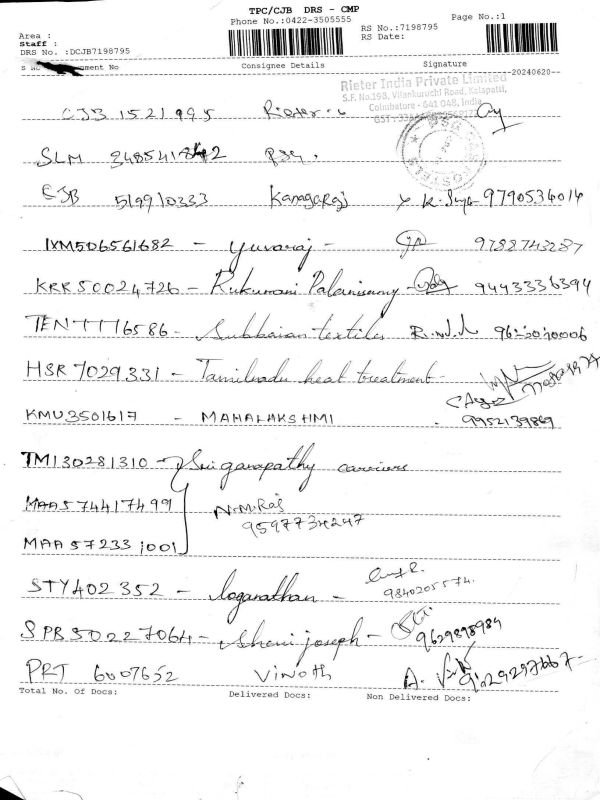 TPC/CJB DRS - CMP
Phone No.:0422-3505555
Page No.:1
RS No.:7198795
RS Date:
Area :
Staff :
DRS No. :DCJB7198795
ment No Consignee Details Signature
20240620
Rieter India Private Limited
S.F. No.193, Vilankuruchi Road, Kalapatti,
Coimbatore - 641 048, India
GST :
CJB 1521995 Rieter
SLM PSG.
CJB 519910333 Kanagaraj 9790534014
IXM506561682 - Yuvaraj - 9788743287
KRR50024726 - Rukumani Palanisamy - 9443336394
TEN1116586 - Subbaian textiles
HSR 7029331 - Tamilnadu heat treatment -
KMU3501617 - MAHALAKSHMI 9952139869
TM130281310 - Sri ganapathy carriers
MAA574417499 N.M.Raj
9597734247
MAA572331001
STY402352 - loganathan - 9840205574.
SPB50227064 - Sheni joseph - 9629898984
PRT 6007652 Vinoth A.
Total No. Of Docs: Delivered Docs: Non Delivered Docs: